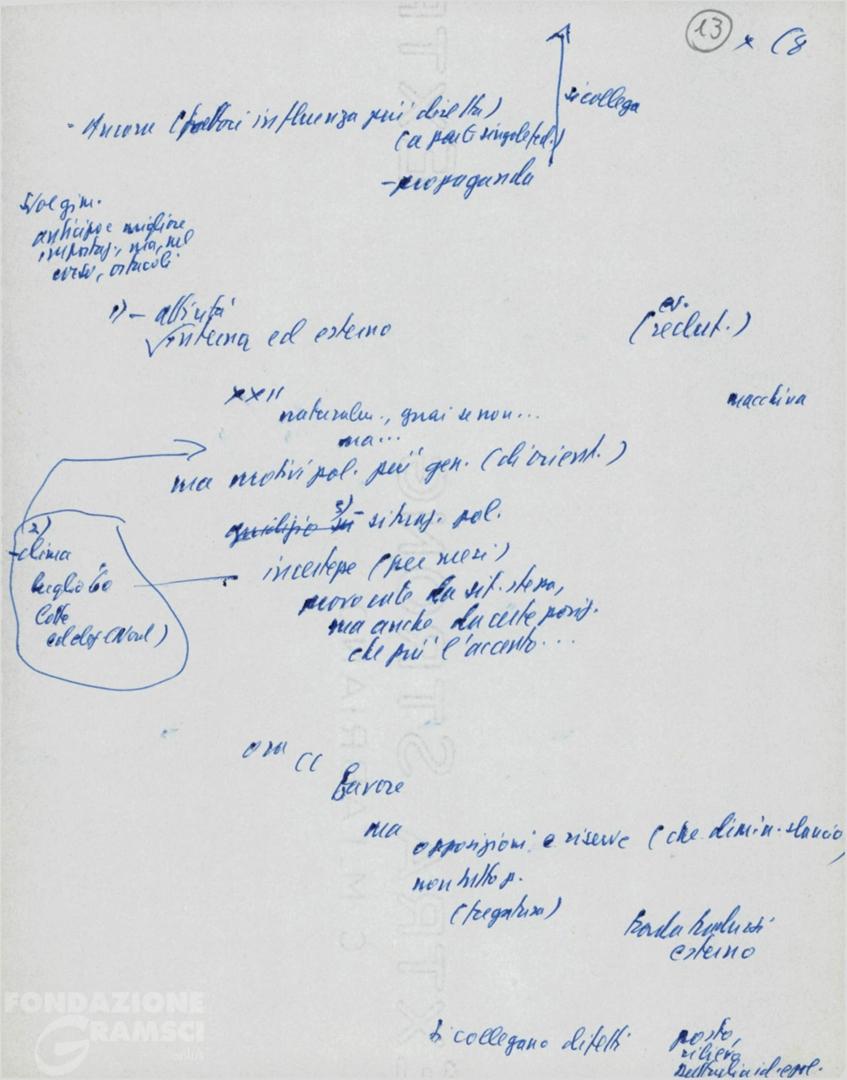 13 x C8
si collega
- Ancora (fattori influenza più diretta)
(a parti singole fed.)
- propaganda
Svolgim.
anticipo e migliore
impostaz., ma, nel
corso, ostacoli
1) - attività
interna ed esterno
es.
(reclut.)
macchina
XXII
naturalm., guai se non...
ma...
ma motivi pol. più gen. (di orient.)
3)
- situaz. pol.
2)
- clima
luglio 60
lotte
ed elez (Nord)
incertezze (per mesi)
provocate da sit. stessa,
ma anche da certe posiz.
che più l'accento...
ora CC
favore
ma
opposizioni e riserve (che dimin. slancio,
non tutto p.
(fregatura)
esterno
Si collegano difetti
posto,
rilievo